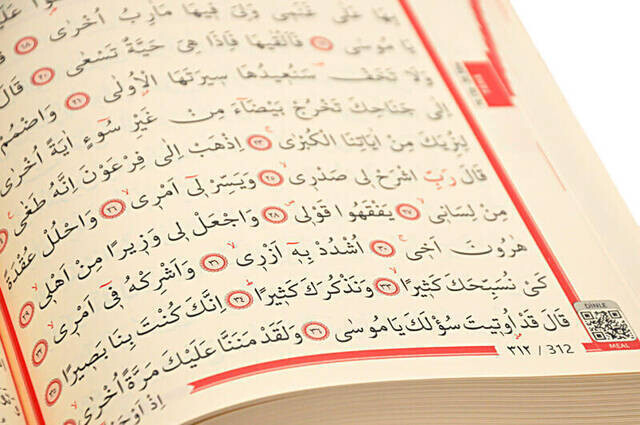 بِهَا عَلٰى غَنَمٖى وَلِىَ فٖيهَا مَاٰرِبُ اُخْرٰى ١٨
يَا مُوسٰى ١٩ فَاَلْقٰيهَا فَاِذَا هِىَ حَيَّةٌ تَسْعٰى ٢٠ قَالَ
وَلَا تَخَفْ سَنُعٖيدُهَا سٖيرَتَهَا الْاُولٰى ٢١ وَاضْمُمْ
اِلٰى جَنَاحِكَ تَخْرُجْ بَيْضَٓاءَ مِنْ غَيْرِ سُٓوءٍ اٰيَةً اُخْرٰى
لِنُرِيَكَ مِنْ اٰيَاتِنَا الْكُبْرٰى ٢٣ اِذْهَبْ اِلٰى فِرْعَوْنَ اِنَّهُ طَغٰى
قَالَ رَبِّ اشْرَحْ لٖى صَدْرٖى ٢٥ وَيَسِّرْ لٖٓى اَمْرٖى ٢٦ وَاحْلُلْ عُقْدَةً
مِنْ لِسَانٖى ٢٧ يَفْقَهُوا قَوْلٖى ٢٨ وَاجْعَلْ لٖى وَزٖيرًا مِنْ اَهْلٖى ٢٩
هٰرُونَ اَخٖى ٣٠ اُشْدُدْ بِهٖٓ اَزْرٖى ٣١ وَاَشْرِكْهُ فٖٓى اَمْرٖى ٣٢
كَىْ نُسَبِّحَكَ كَثٖيرًا ٣٣ وَنَذْكُرَكَ كَثٖيرًا ٣٤ اِنَّكَ كُنْتَ بِنَا بَصٖيرًا ٣٥
قَالَ قَدْ اُوتٖيتَ سُؤْلَكَ يَا مُوسٰى ٣٦ وَلَقَدْ مَنَنَّا عَلَيْكَ مَرَّةً اُخْرٰى
اِذْ
DİNLE
MEAL
٣١٢ / 312